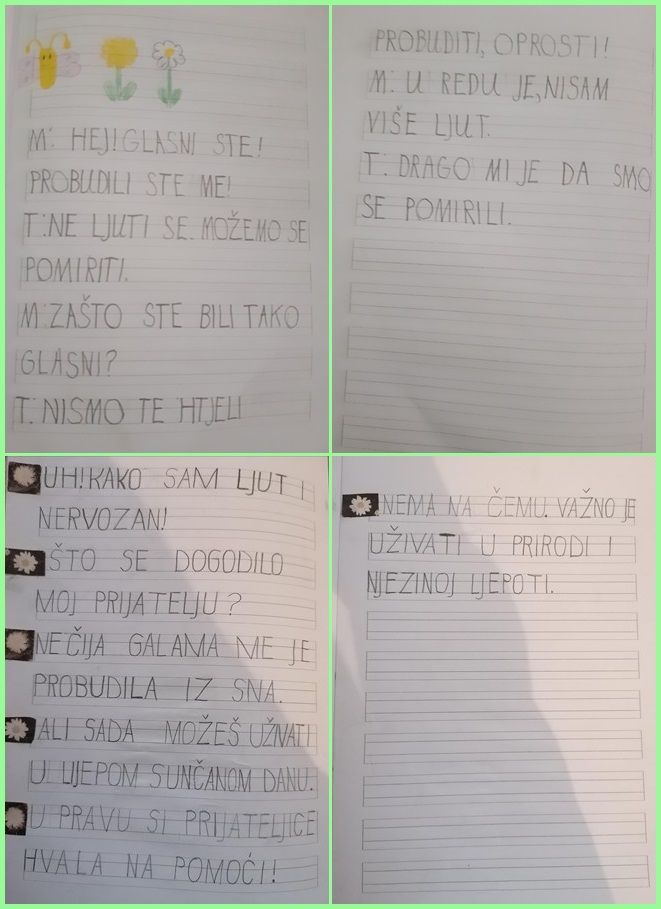 M: HEJ! GLASNI STE!
PROBUDILI STE ME!
T: NE LJUTI SE. MOŽEMO SE
POMIRITI.
M: ZAŠTO STE BILI TAKO
GLASNI?
T: NISMO TE HTJELI
PROBUDITI, OPROSTI!
M: U REDU JE, NISAM
VIŠE LJUT.
T: DRAGO MI JE DA SMO
SE POMIRILI.
UH! KAKO SAM LJUT I
NERVOZAN!
ŠTO SE DOGODILO
MOJ PRIJATELJU?
NEČIJA GALAMA ME JE
PROBUDILA IZ SNA.
ALI SADA MOŽEŠ UŽIVATI
U LIJEPOM SUNČANOM DANU.
U PRAVU SI PRIJATELJICE
HVALA NA POMOĆI!
NEMA NA ČEMU. VAŽNO JE
UŽIVATI U PRIRODI I
NJEZINOJ LJEPOTI.